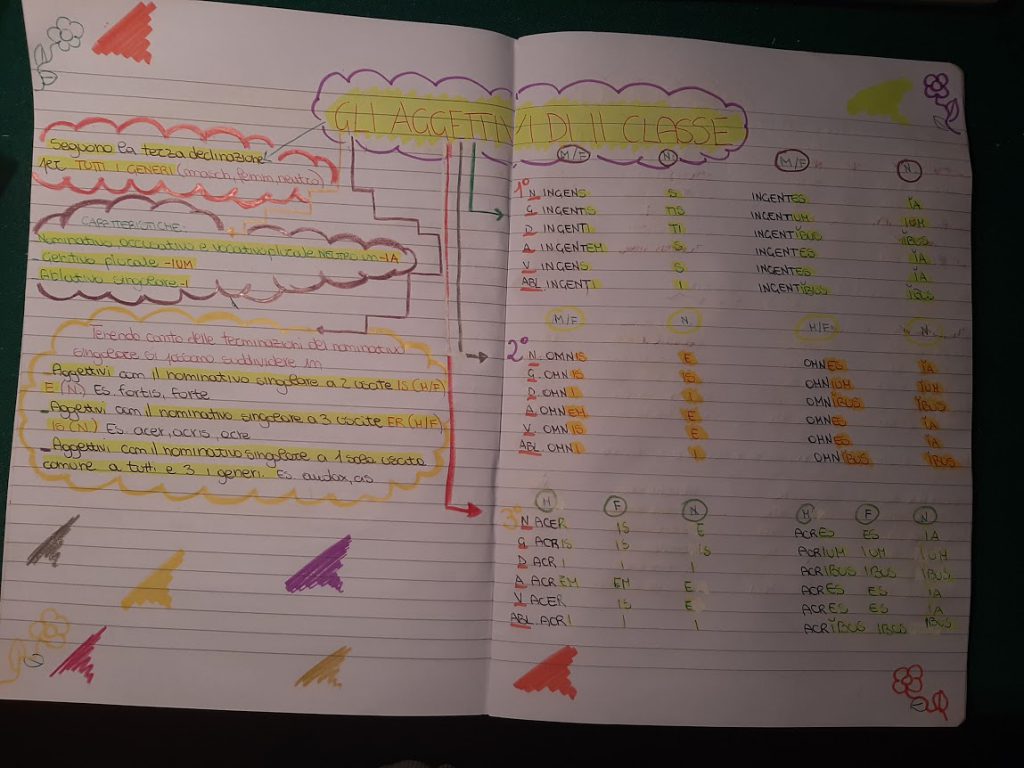 GLI AGGETTIVI DI II CLASSE
Seguono la terza declinazione
per TUTTI I GENERI (masch, femm, neutro)
CARATTERISTICHE:
Nominativo accusativo e vocativo plurale NEUTRO in -IA
Genitivo plurale -IUM
Ablativo singolare -I
Tenendo conto delle terminazioni del nominativo
singolare si possono suddividere in
- Aggettivi con il nominativo singolare a 2 uscite IS (M/F)
E (N). Es. fortis, forte
- Aggettivi con il nominativo singolare a 3 uscite ER (M/F)
IS (N) Es. acer, acris, acre
- Aggettivi con il nominativo singolare a 1 sola uscita
comune a tutti e 3 i generi. Es. audax, cis
M/F N. M/F N.
1° N. INGENS S INGENTES ĬA
G. INGENTIS TIS INGENTIUM IUM
D. INGENTI TI INGENTĬBUS ĬBUS
A. INGENTEM S INGENTES ĬA
V. INGENS S INGENTES ĬA
ABL. INGENTI I INGENTĬBUS ĬBUS
M/F N. M/F N.
2° N. OMNIS E OMNES ĬA
G. OMNIS IS OMNIUM IUM
D. OMNI I OMNĬBUS ĬBUS
A. OMNEM E OMNES ĬA
V. OMNIS E OMNES ĬA
ABL. OMNI I OMNĬBUS ĬBUS
M F N. M F N
3° N ACER IS E ACRES ES IA
G. ACRIS IS IS ACRIUM IUM IUM
D. ACRI I I ACRĬBUS IBUS IBUS
A. ACREM EM E ACRES ES IA
V. ACER IS E ACRES ES IA
ABL. ACRI I I ACRĬBUS IBUS ĬBUS